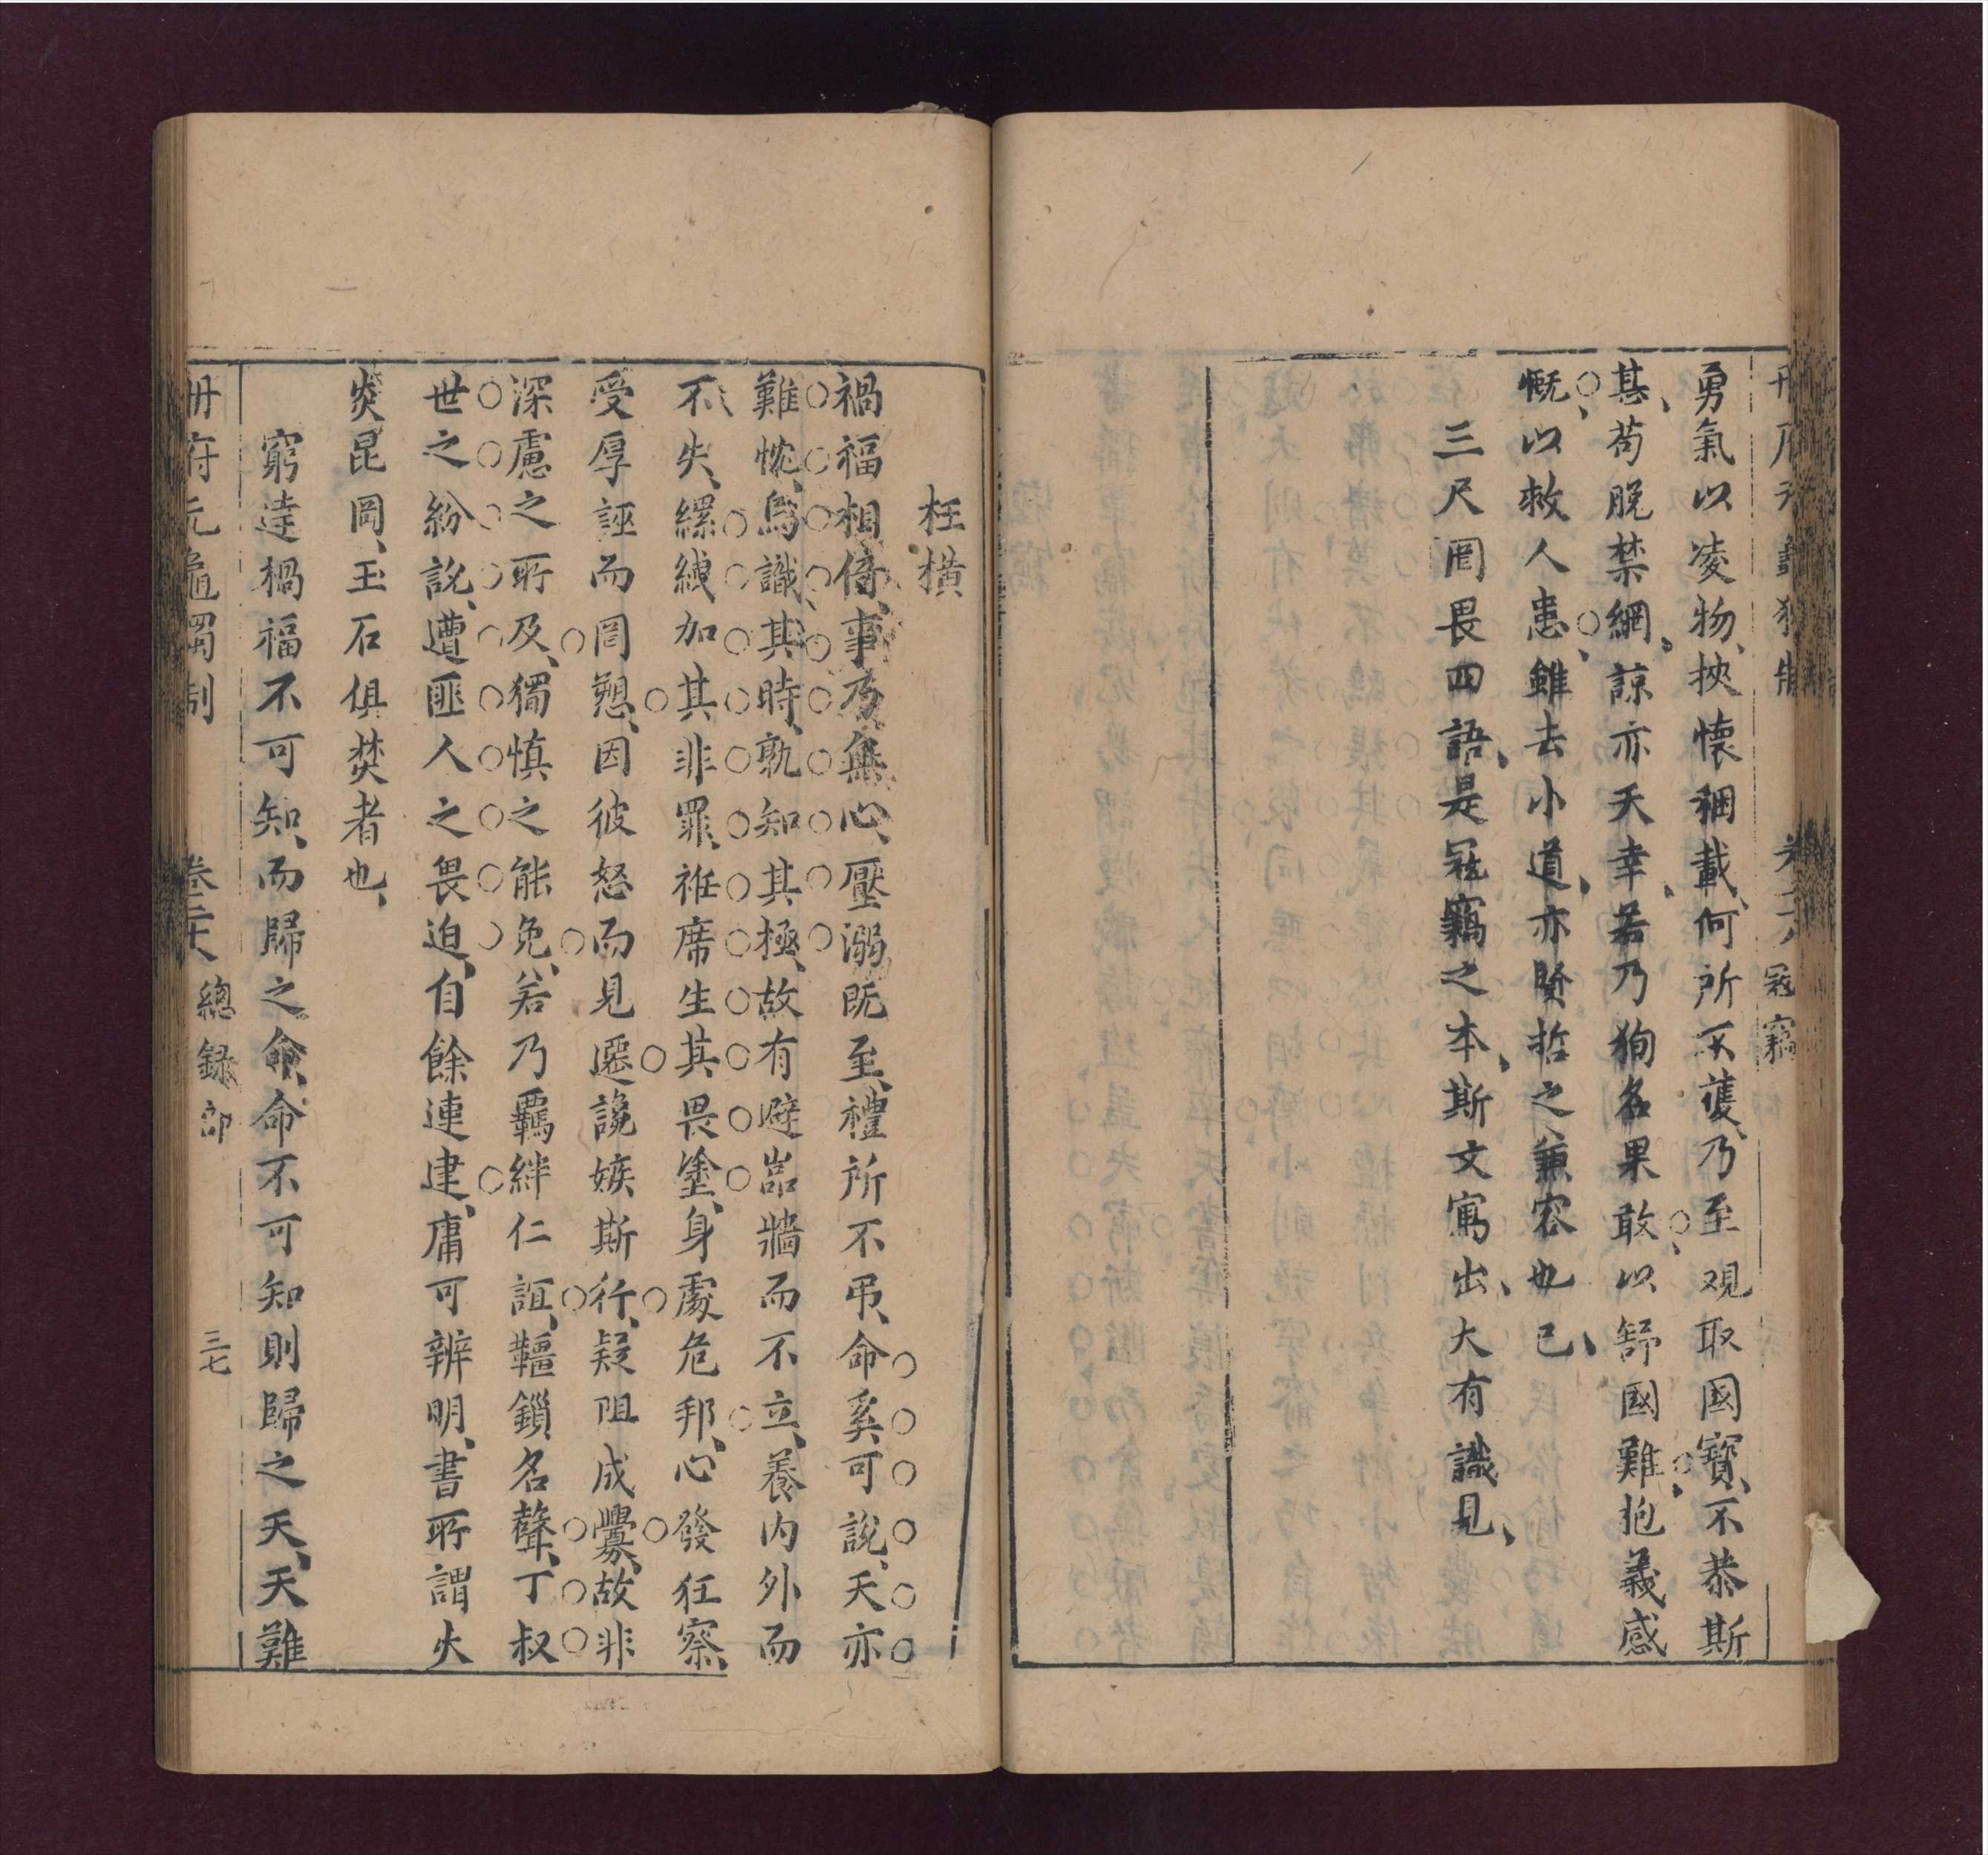 寇竊
勇氣以凌物、挾懷稇載、何所不獲、乃至覌取國寶、不恭斯
甚、苟脫禁網、諒亦天幸、若乃狥名果敢、以舒國難、抱義感
慨、以救人患、雖去小道、亦賢哲之兼容也已、
三尺罔畏四語、是寇竊之本、斯文寫出、大有識見、
枉橫
禍福相倚、事乃無心、壓溺既至、禮所不弔、命奚可說、天亦
難忱、烏識其時、孰知其極、故有避嵓牆而不立、養內外而
不失、縲紲加其非罪、袵席生其畏塗、身處危邦、心發狂察、
受厚誣而罔愬、因彼怒而見遷、讒嫉斯行、疑阻成釁、故非
深慮之所及、獨慎之能免、若乃羈絆仁誼、韁鎖名聲、丁叔
世之紛說、遭匪人之畏迫、自餘連逮、庸可辨明、書所謂火
炎昆岡、玉石俱焚者也、
窮達禍福不可知、而歸之命、命不可知則歸之天、天難
冊府元龜獨制 卷二十八 總錄部 三七